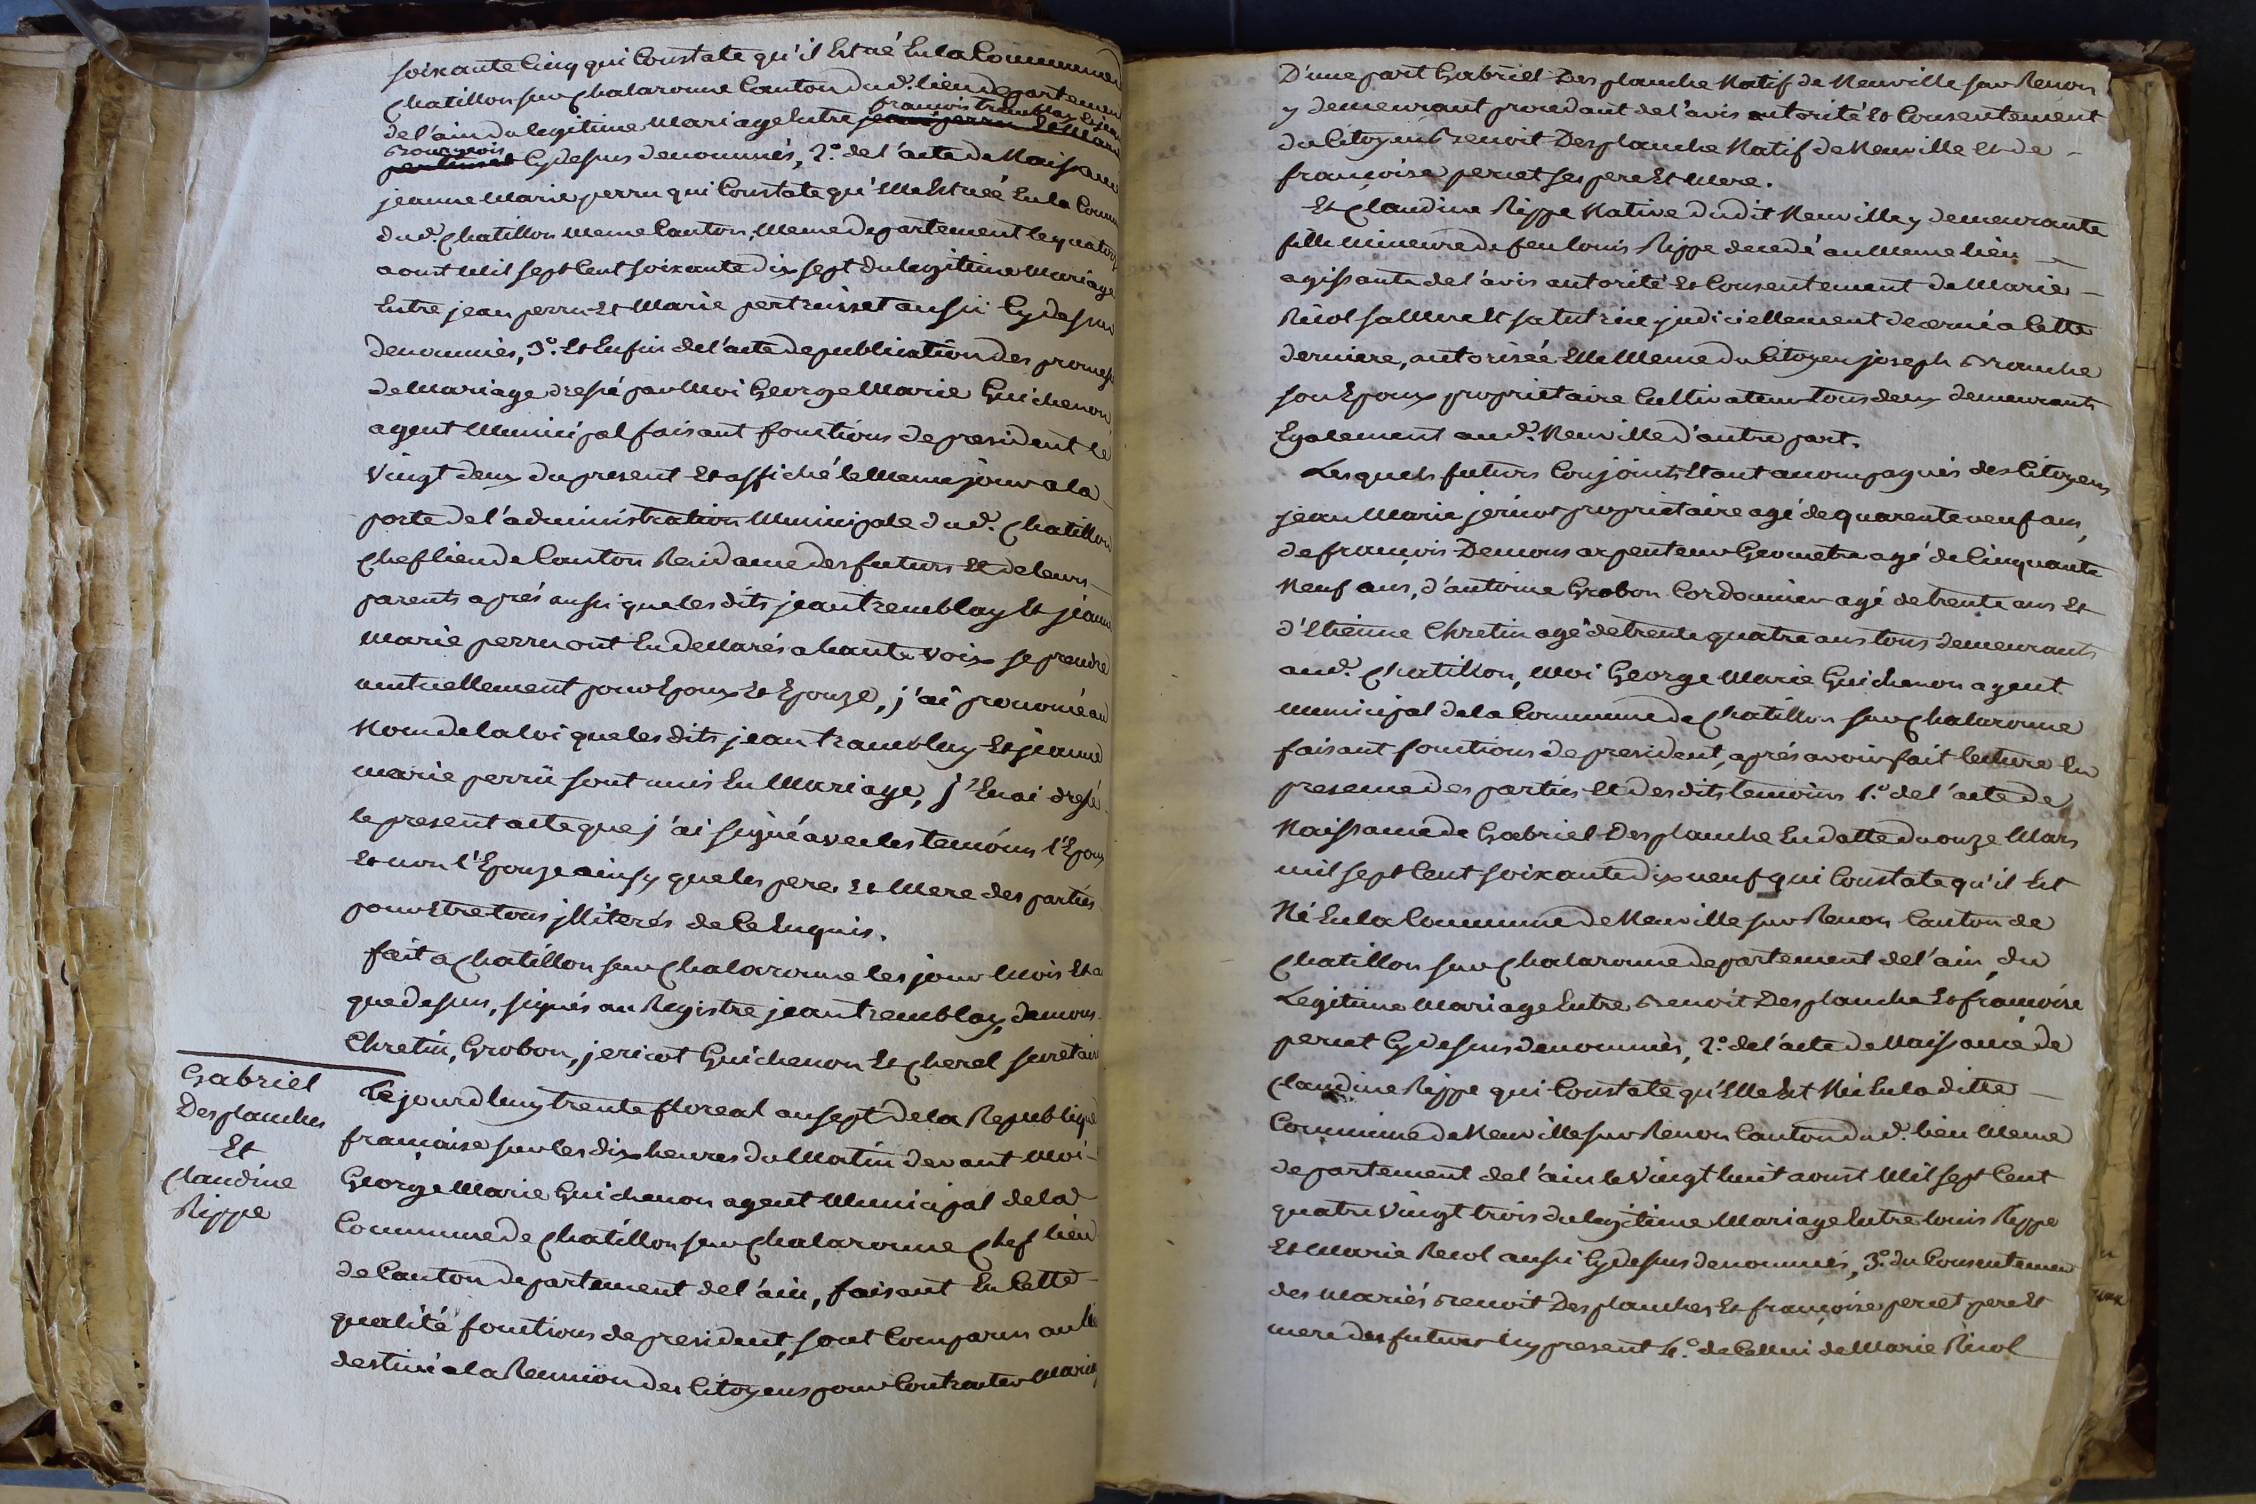 soixante Cinq qui Constate qu'il Est né En la Commune
Chatillon sur Chalaronne Canton dud. lieu departement
de l'ain du legitime Mariage Entre jean perru Et Marie
francois tramblay Et jeanne
Bourgeois
Cydessus denommés, 2.º de l'acte de Naissance
jeanne Marie perru qui Constate qu'Elle Est née En la Commune
dud. Chatillon meme Canton, meme departement le quatorze
aoust Mil sept Cent soixante dix sept du legitime Mariage
Entre jean perru Et Marie pertuisset aussi Cydessus
denommés, 3.º Et Enfin de l'acte de publication des promesses
de Mariage dressé par Moi George Marie Guichenon
agent Municipal faisant fonctions de president le
Vingt deux du present Et affiché le meme jour a la
porte de l'administration Municipale dud. Chatillon
Chef lieu de Canton Residance des futurs Et de leurs
parents aprés aussi que les dits jean tremblay Et jeanne
Marie perru ont En declarés a haute Voix se prendre
mutuellement pour Epoux Et Epouze, j'ai prononcé au
Nom de la loi que les dits jean tramblay Et jeanne
marie perrü sont unis En Mariage, j'En ai dressé
le present acte que j'ai signé avec les temoins l'Epoux
Et non l'Epouze ainsy que les pere Et Mere des parties
pour Etre tous jlliterés de Ce Enquis.
fait a Chatillon sur Chalaronne les jour Mois Et a
que dessus, signés au Registre jean tremblay, demons
Chretin, Grobon, jericot Guichenon Et Cherel secretaire
Gabriel
Desplanches
Et
Claudine
Rippe
Ce jourdhuy trente floreal an sept de la Republique
francaise sur les dix heures du Matin devant Moi
George Marie Guichenon agent Municipal de la
Commune de Chatillon sur Chalaronne Chef lieu
de Canton departement de l'ain, faisant En Cette
qualité fonctions de president, sont Comparus au lieu
destiné a la Reunion des Citoyens pour Contracter Mariage
D'une part Gabriel Desplanche Natif de Neuville sur Renon
y demeurant procedant de l'avis autorité Et Consentement
du Citoyen Benoit Desplanche Natif de Neuville Et de
françoise pernet ses pere Et Mere.
Et Claudine Rippe Native dudit Neuville y demeurante
fille mineure de feu louis Rippe decedé au Meme lieu
agissante de l'avis autorité Et Consentement de Marie
Ricol sa Mere Et sa tutrice judiciellement decernée a Cette
derniere, autorisée Elle Meme du Citoyen joseph Branche
son Epoux proprietaire Cultivateur tous deux demeurants
Egalement aud. Neuville d'autre part.
Lesquels futurs Conjoints Etant accompagnés des Citoyens
jean Marie jericot proprietaire agé de quarente neuf ans,
de françois Demons arpenteur Geometre agé de Cinquante
Neuf ans, d'antoine Grobon Cordonnier agé de trente ans Et
d'Etienne Chretin agé de trente quatre ans tous demeurants
aud. Chatillon, Moi George Marie Guichenon agent
municipal de la Commune de Chatillon sur Chalaronne
faisant fonctions de president, aprés avoir fait lecture En
presence des parties Et des dits temoins 1.º de l'acte de
Naissance de Gabriel Desplanche En datte du onze Mars
mil sept Cent soixante dix neuf qui Constate qu'il Est
Né En la Commune de Neuville sur Renon Canton de
Chatillon sur Chalaronne departement de l'ain, du
Legitime Mariage Entre Benoit Desplanche Et françoise
pernet Cydessus denommés, 2.º de l'acte de Naissance de
Claudine Rippe qui Constate qu'Elle Est Née En la ditte
Commune de Neuville sur Renon Canton dud. lieu Meme
departement de l'ain le Vingt huit aoust Mil sept Cent
quatre Vingt trois du legitime Mariage Entre louis Rippe
Et Marie Ricol aussi Cydessus denommés, 3.º du Consentement
des mariés Benoit Desplanches Et françoise pernet pere Et
mere des futurs Cy present 4.º de Cellui de Marie Ricol